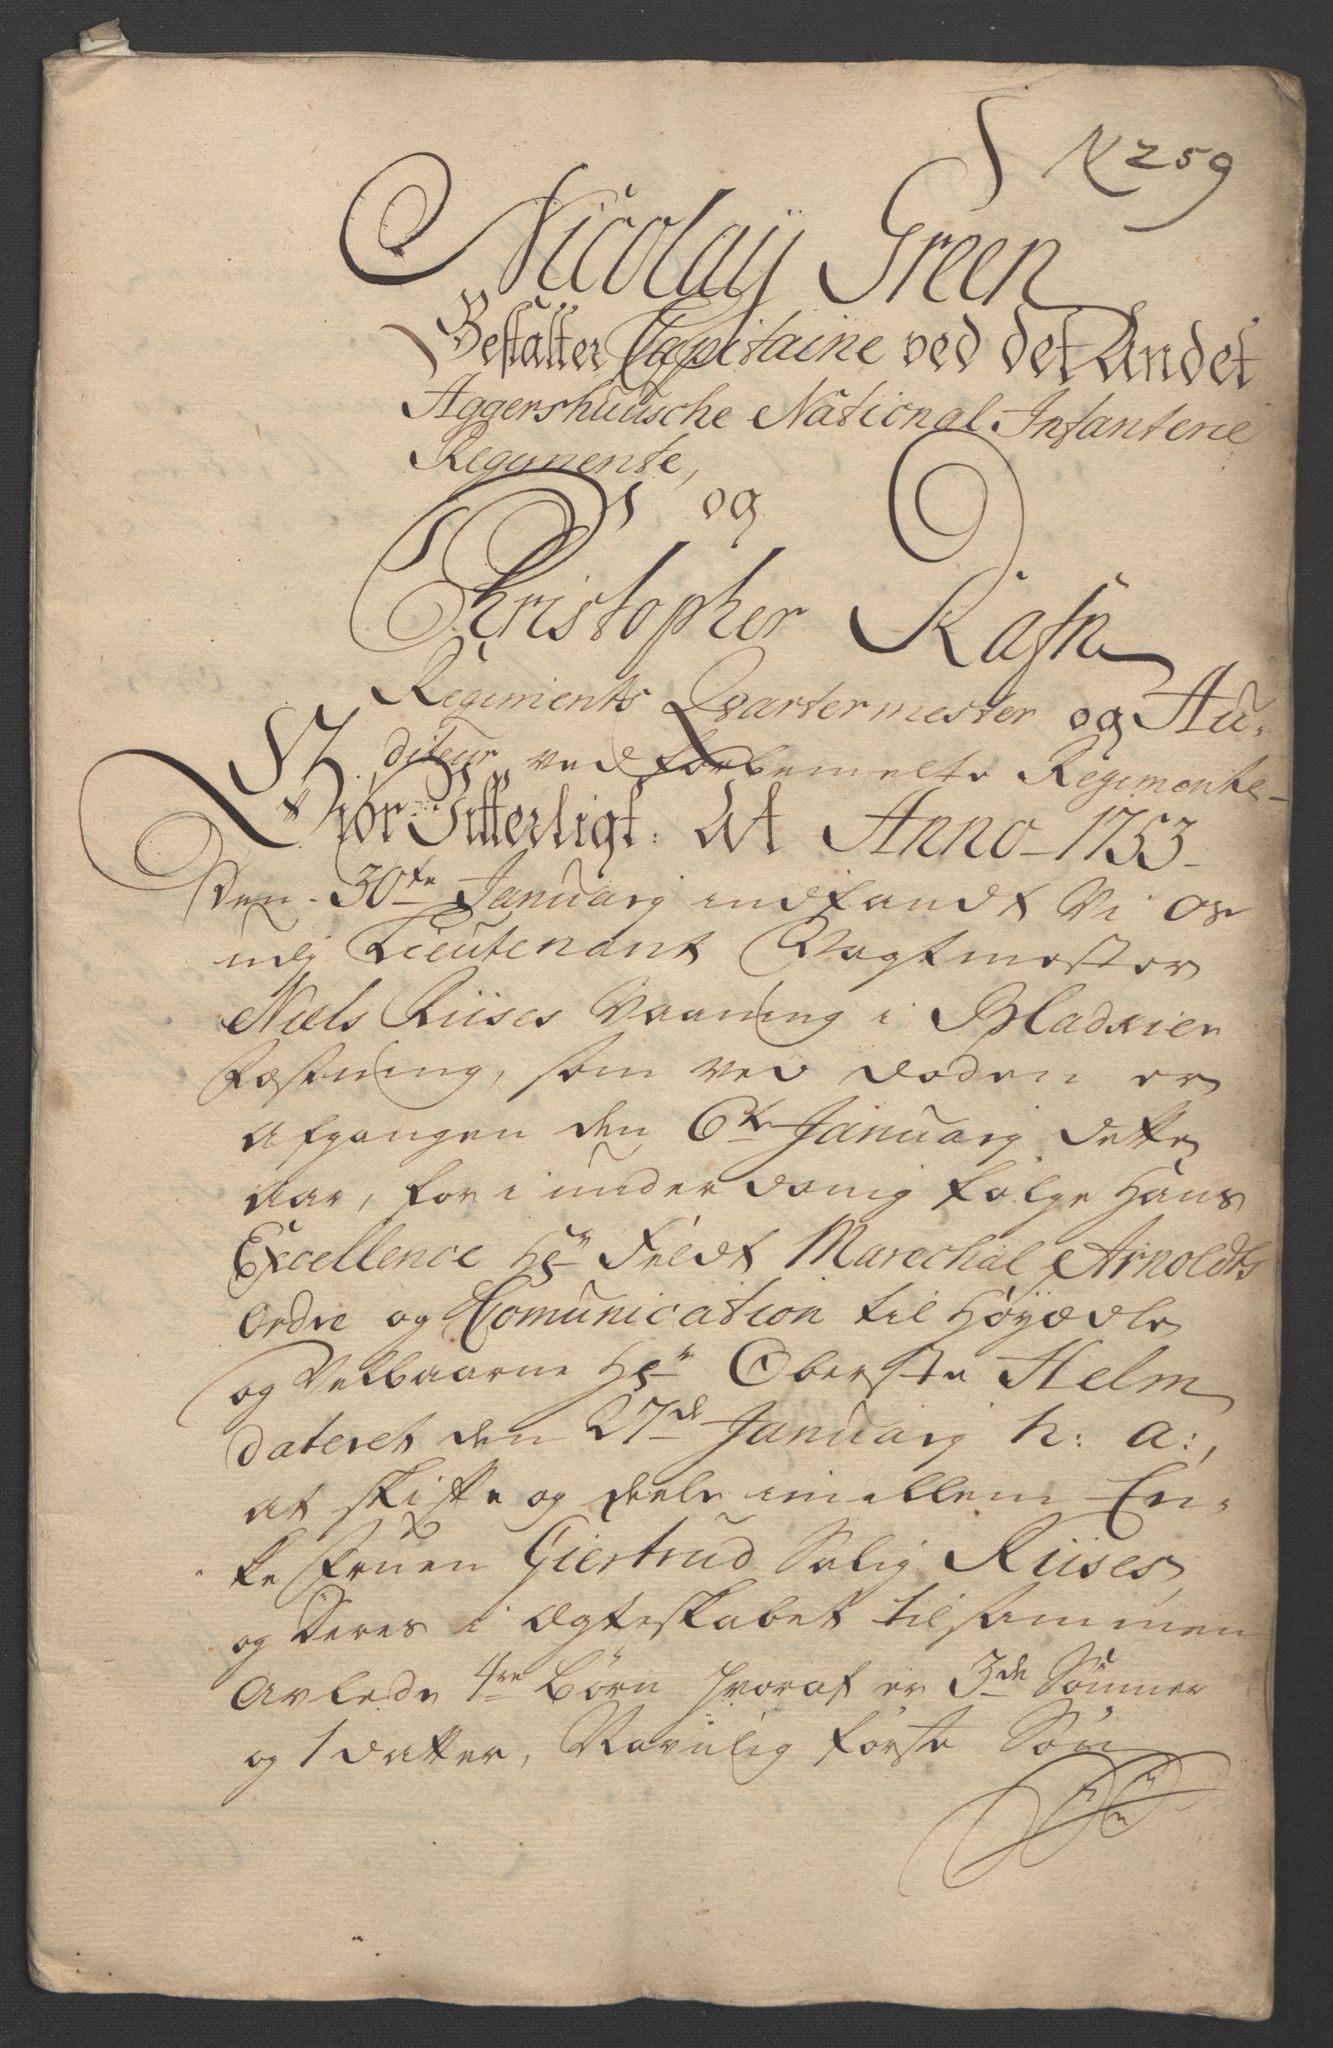 N 259
Nicolaÿ Green
Bestalter Capitaine ved det Andet
Aggershuusche National Infanterie
Regimente,
og
Christopher Rafn
Regiments Qvartermester og Au-
diteur ved forbemelte Regimente-
Giør Vitterligt: At Anno-1753-
den 30te Januarij indfandt Vi Os
udj Lieutenant Vagtmester
Niels Riises Vaaning i Bladkier
Fæstning, som ved døden er
afgangen den 6te Januarij dette
aar, for i underdanig følge Hans
Excellence Hr Feldt Marechal Arnoldts
Ordre og Comunication til Høyædle
og Velbaarne Hr Oberste Helm
dateret den 27de Januarij h: a:,
at skifte og deele imellem En-
ke Fruen Giertrud Salig Riises
og deres i Ægteskabet tilsammen
Avlede 4re børn hvoraf er 3de Sønner
og 1 datter, Navnlig første Søn